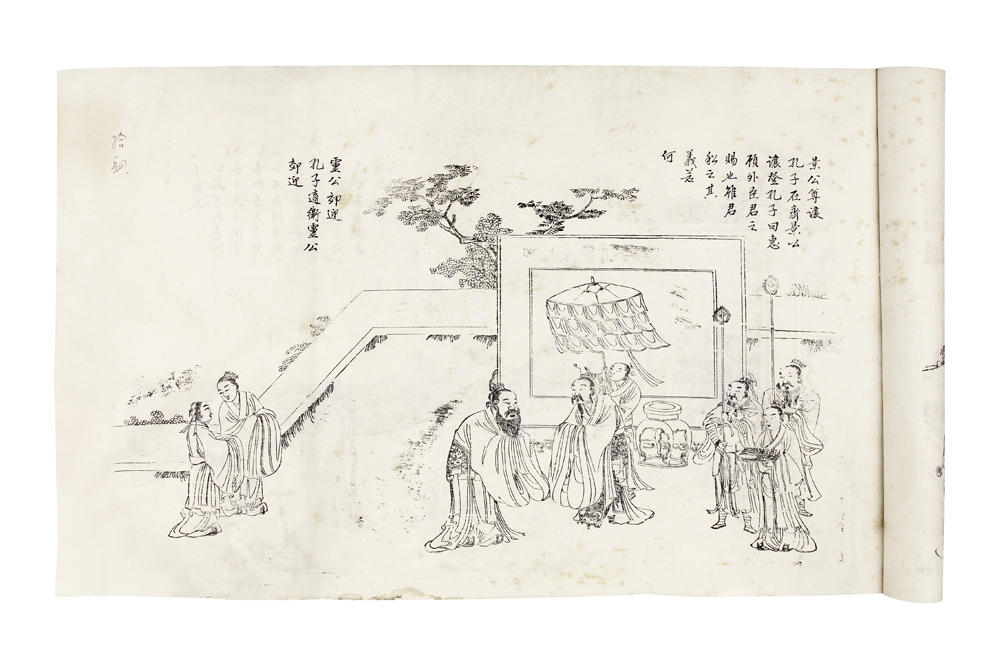 景公尊讓
孔子在齊景公
讓登孔子曰惠
顧外臣君之
賜也雖君
私之其
義若
何
靈公郊迎
孔子適衛靈公
郊迎
拾